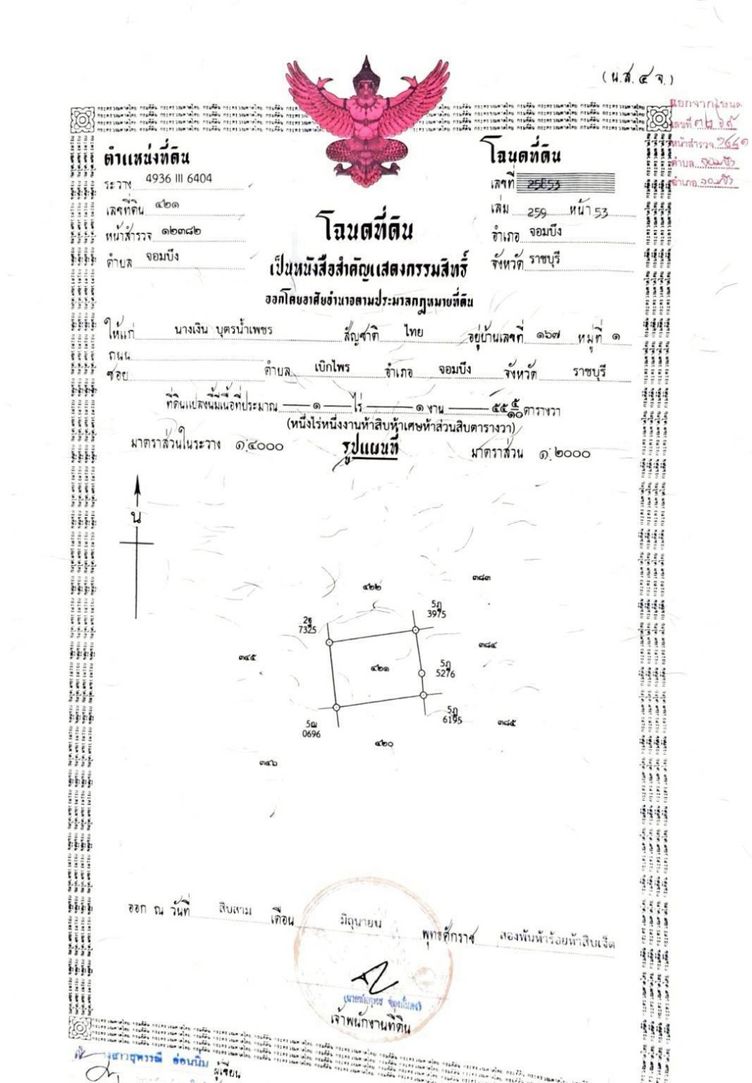 (น.ส. ๔ จ.)
ตำแหน่งที่ดิน
ระวาง 4936 III 6404
เลขที่ดิน ๔๒๑
หน้าสำรวจ ๑๒๓๘๒
ตำบล จอมบึง
โฉนดที่ดิน
เลขที่ 25853
เล่ม 259 หน้า 53
อำเภอ จอมบึง
จังหวัด ราชบุรี
เลขที่
หน้าสำรวจ
ตำบล จอมบึง
อำเภอ จอมบึง
โฉนดที่ดิน
เป็นหนังสือสำคัญแสดงกรรมสิทธิ์
ออกโดยอาศัยอำนาจตามประมวลกฎหมายที่ดิน
ให้แก่ นางเงิน บุตรน้ำเพชร สัญชาติ ไทย อยู่บ้านเลขที่ ๑๖๗ หมู่ที่ ๑
ถนน
ซอย ตำบล เบิกไพร อำเภอ จอมบึง จังหวัด ราชบุรี
ที่ดินแปลงนี้มีเนื้อที่ประมาณ ๑ ไร่ ๑ งาน ๕๕ ๕/๑๐ ตารางวา
(หนึ่งไร่หนึ่งงานห้าสิบห้าเศษห้าส่วนสิบตารางวา)
มาตราส่วนในระวาง ๑:๔๐๐๐ รูปแผนที่ มาตราส่วน ๑:๒๐๐๐
น
๓๘๓
๔๒๒
2ฐ
7325
5ฎ
3975
๓๘๔
๓๔๕
๔๒๑
5ฎ
5276
5ฌ
0696
5ฎ
6195
๓๘๕
๔๒๐
๓๔๖
ออก ณ วันที่ สิบสาม เดือน มิถุนายน พุทธศักราช สองพันห้าร้อยห้าสิบเจ็ด
เจ้าพนักงานที่ดิน
ผู้เขียน